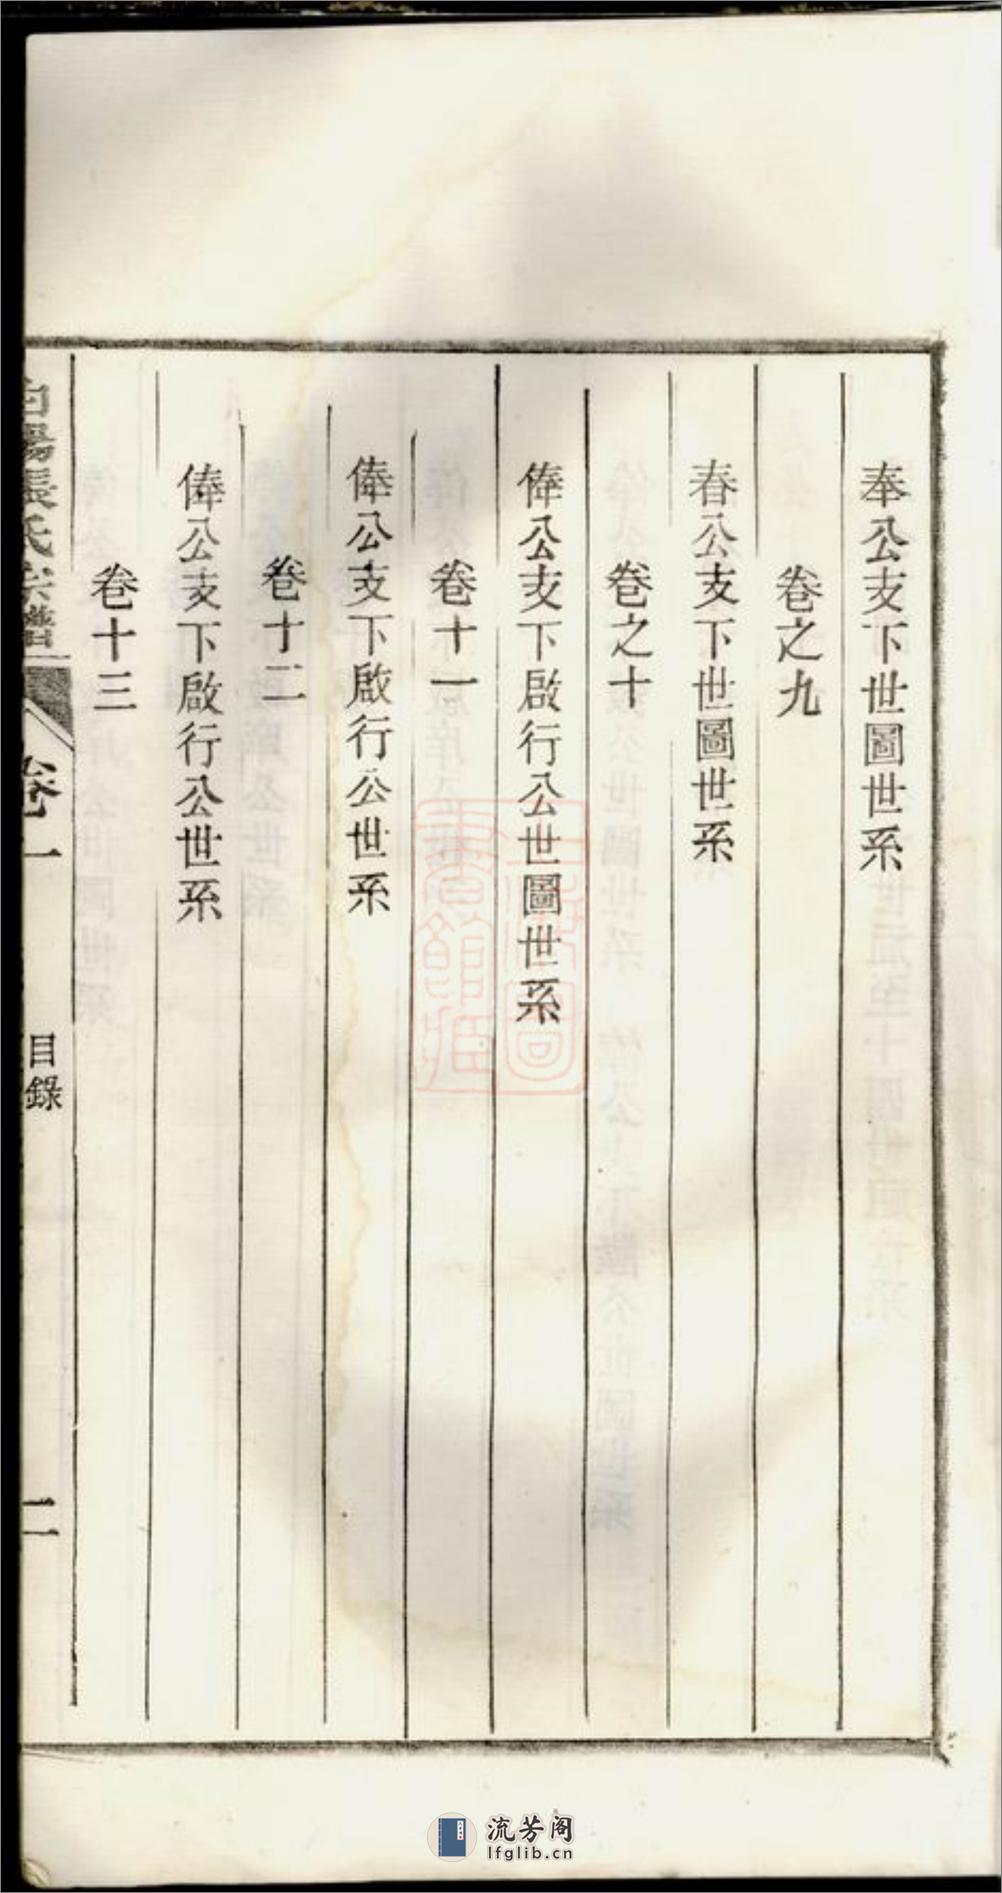 奉公支下世圖世系
卷之九
春公支下世圖世系
卷之十
俸公支下啟行公世圖世系
卷十一
俸公支下啟行公世系
卷十二
俸公支下啟行公世系
卷十三
張氏宗譜
卷一
目錄
二
上海圖書館藏
流芳阁
lfglib.cn